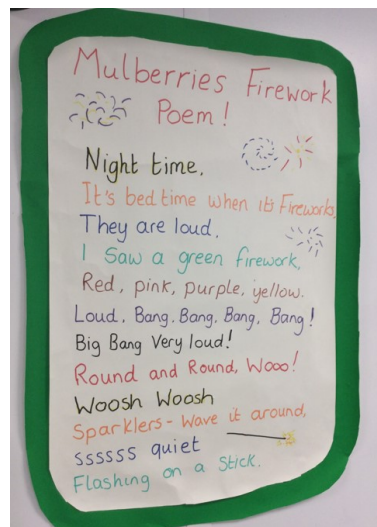 Mulberries Firework
Poem!
Night time.
It's bedtime when it's Fireworks.
They are loud.
I Saw a green firework,
Red, pink, purple, yellow.
Loud, Bang. Bang. Bang, Bang!
Big Bang Very loud!
Round and Round, Wooo!
Woosh Woosh
Sparklers - Wave it around,
ssssss quiet
Flashing on a Stick.